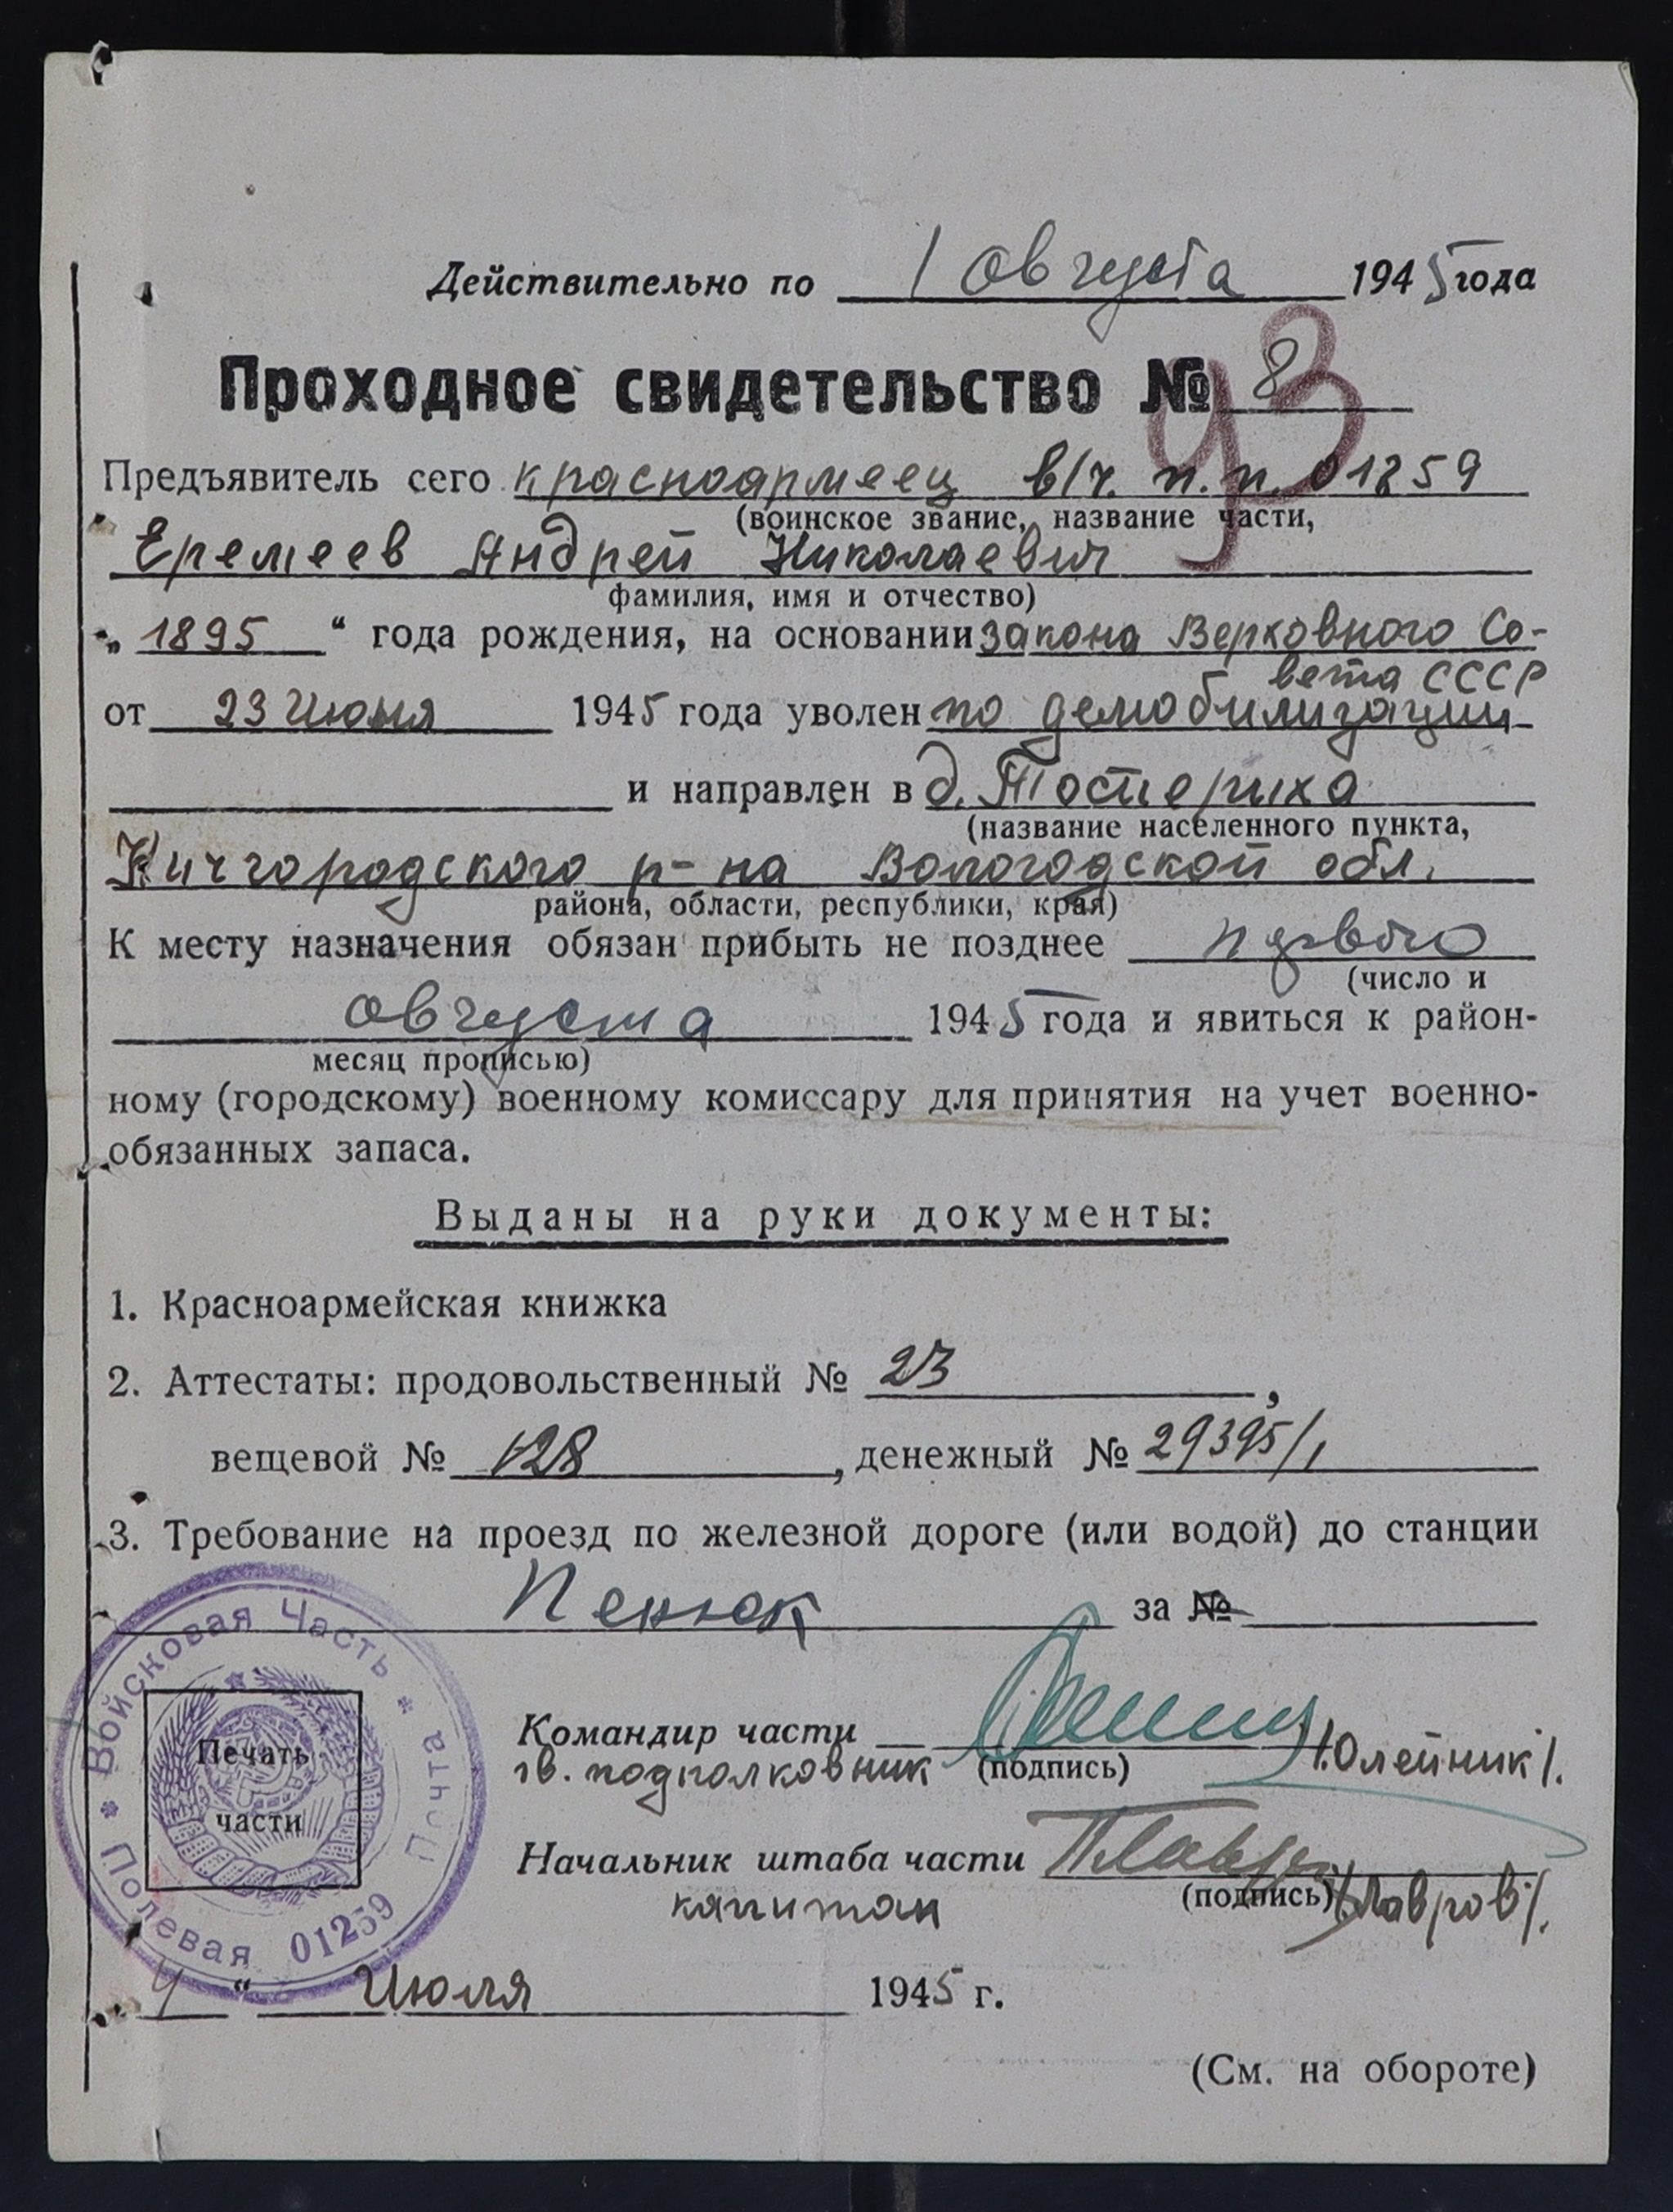 Действительно по 1 августа 1945 года
Проходное свидетельство № 8
93
Предъявитель сего красноармеец в/ч. п.п. 01259
(воинское звание, название части,
Еремеев Андрей Николаевич
фамилия, имя и отчество)
„ 1895 “ года рождения, на основании закона Верховного Со-
вета СССР
от 23 Июня 1945 года уволен по демобилизации
и направлен в д.
(название населенного пункта,
Кичгородского р-на Вологодской обл.
района, области, республики, края)
К месту назначения обязан прибыть не позднее первого
(число и
августа 1945 года и явиться к район-
месяц прописью)
ному (городскому) военному комиссару для принятия на учет военно-
обязанных запаса.
Выданы на руки документы:
1. Красноармейская книжка
2. Аттестаты: продовольственный № 23,
вещевой № 128, денежный № 29395/1
3. Требование на проезд по железной дороге (или водой) до станции
за №
Командир части
гв. подполковник (подпись) /Олейник/.
Начальник штаба части
капитан (подпись) /Лавров/.
Войсковая Часть * Полевая Почта * 01259
Печать
части
4 “ Июля 1945 г.
(См. на обороте)